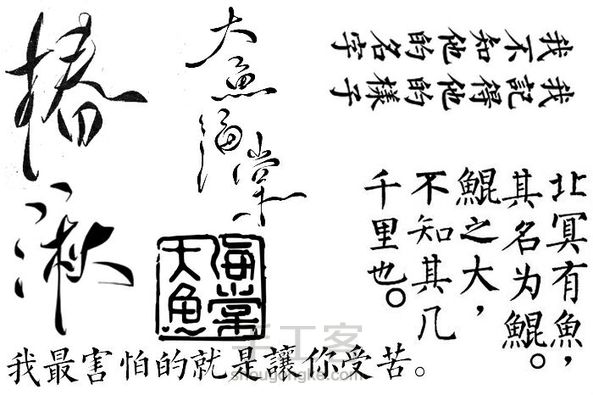 椿
湫
大魚海棠
大魚
海棠
我不知他的名字
我記得他的樣子
北冥有魚，
其名为鯤。
鯤之大，
不知其几
千里也。
我最害怕的就是讓你受苦。
手工客
shougongke.com